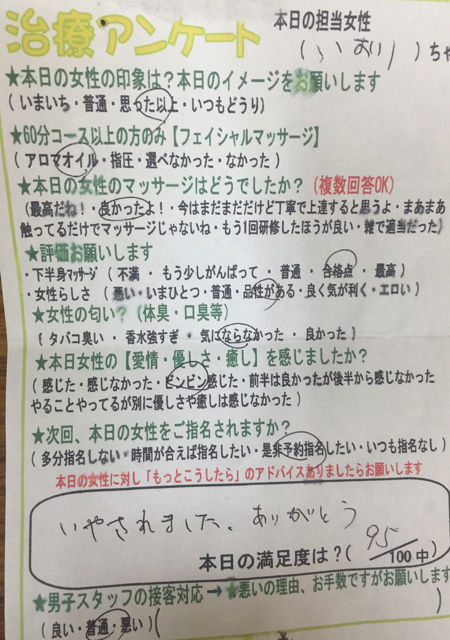 治療アンケート
本日の担当女性
( いおり )ちゃ
★本日の女性の印象は?本日のイメージをお願いします
( いまいち・普通・思った以上・いつもどうり)
★60分コース以上の方のみ【フェイシャルマッサージ】
( アロマオイル・指圧・選べなかった・なかった )
★本日の女性のマッサージはどうでしたか? (複数回答OK)
(最高だね!・良かったよ!・今はまだまだだけど丁寧で上達すると思うよ・まあまあ
触ってるだけでマッサージじゃないね・もう1回研修したほうが良い・雑で適当だった)
★評価お願いします
・下半身マッサージ ( 不満 ・ もう少しがんばって ・ 普通 ・ 合格点 ・ 最高 )
・女性らしさ ( 悪い・いまひとつ・普通・品性がある・良く気が利く・エロい )
★女性の匂い? (体臭・口臭等)
( タバコ臭い ・ 香水強すぎ ・ 気にならなかった ・ 良かった )
★本日女性の【愛情・優しさ・癒し】を感じましたか?
( 感じた・感じなかった・ビンビン感じた・前半は良かったが後半から感じなかった
やることやってるが別に優しさや癒しは感じなかった )
★次回、本日の女性をご指名されますか?
( 多分指名しない・時間が合えば指名したい・是非予約指名したい・いつも指名なし )
本日の女性に対し「もっとこうしたら」のアドバイスありましたらお願いします
いやされました、ありがとう
本日の満足度は?( 95/100中)
★男子スタッフの接客対応 → ★悪いの理由、お手数ですがお願いします
( 良い・普通・悪い )( )